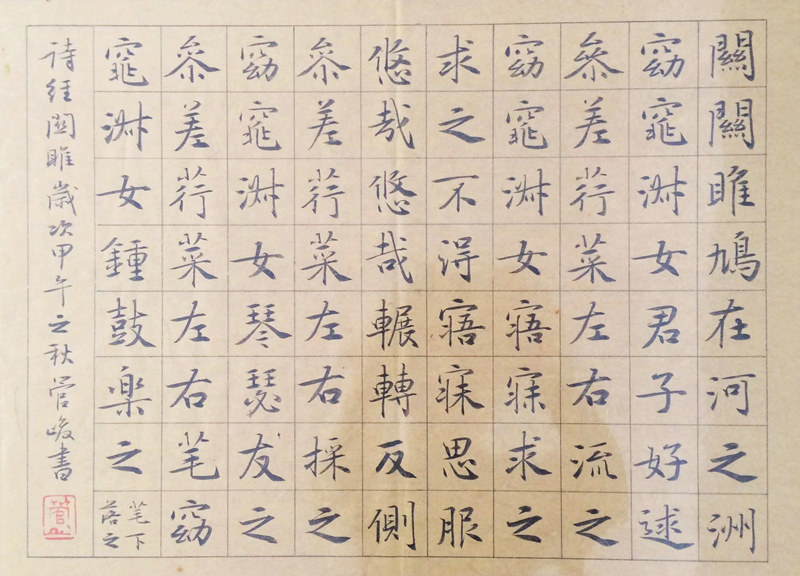 關關雎鳩在河之洲
窈窕淑女君子好逑
參差荇菜左右流之
窈窕淑女寤寐求之
求之不得寤寐思服
悠哉悠哉輾轉反側
參差荇菜左右採之
窈窕淑女琴瑟友之
參差荇菜左右芼窈
窕淑女鍾鼓樂之
芼下
落之
詩經關雎歲次甲午之秋管峻書